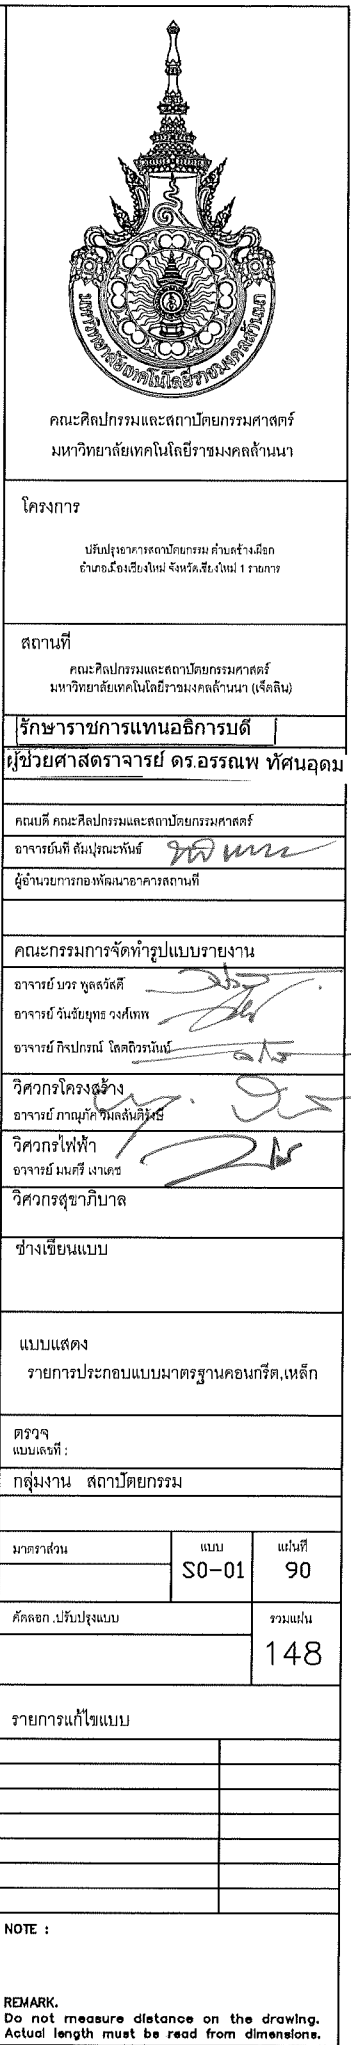 มหาวิทยาลัยเทคโนโลยีราชมงคลล้านนา
คณะศิลปกรรมและสถาปัตยกรรมศาสตร์
มหาวิทยาลัยเทคโนโลยีราชมงคลล้านนา
โครงการ
ปรับปรุงอาคารสถาปัตยกรรม ตำบลช้างเผือก
อำเภอเมืองเชียงใหม่ จังหวัดเชียงใหม่ 1 รายการ
สถานที่
คณะศิลปกรรมและสถาปัตยกรรมศาสตร์
มหาวิทยาลัยเทคโนโลยีราชมงคลล้านนา (เจ็ดลิน)
รักษาราชการแทนอธิการบดี
ผู้ช่วยศาสตราจารย์ ดร.อรรณพ ทัศนอุดม
คณบดี คณะศิลปกรรมและสถาปัตยกรรมศาสตร์
อาจารย์นที สัมปุรณะพันธ์
ผู้อำนวยการกองพัฒนาอาคารสถานที่
คณะกรรมการจัดทำรูปแบบรายงาน
อาจารย์ บวร พูลสวัสดิ์
อาจารย์ วันชัยยุทธ วงศ์เทพ
อาจารย์ กิจปกรณ์ โสตถิวรนันน์
วิศวกรโครงสร้าง
อาจารย์ ภาณุภัค วิมลสันติรังษี
วิศวกรไฟฟ้า
อาจารย์ มนตรี เงาเดช
วิศวกรสุขาภิบาล
ช่างเขียนแบบ
แบบแสดง
รายการประกอบแบบมาตรฐานคอนกรีต,เหล็ก
ตรวจ
แบบเลขที่ :
กลุ่มงาน สถาปัตยกรรม
มาตราส่วน แบบ แผ่นที่
S0-01 90
คัดลอก ,ปรับปรุงแบบ รวมแผ่น
148
รายการแก้ไขแบบ
NOTE :
REMARK.
Do not measure distance on the drawing.
Actual length must be read from dimensions.